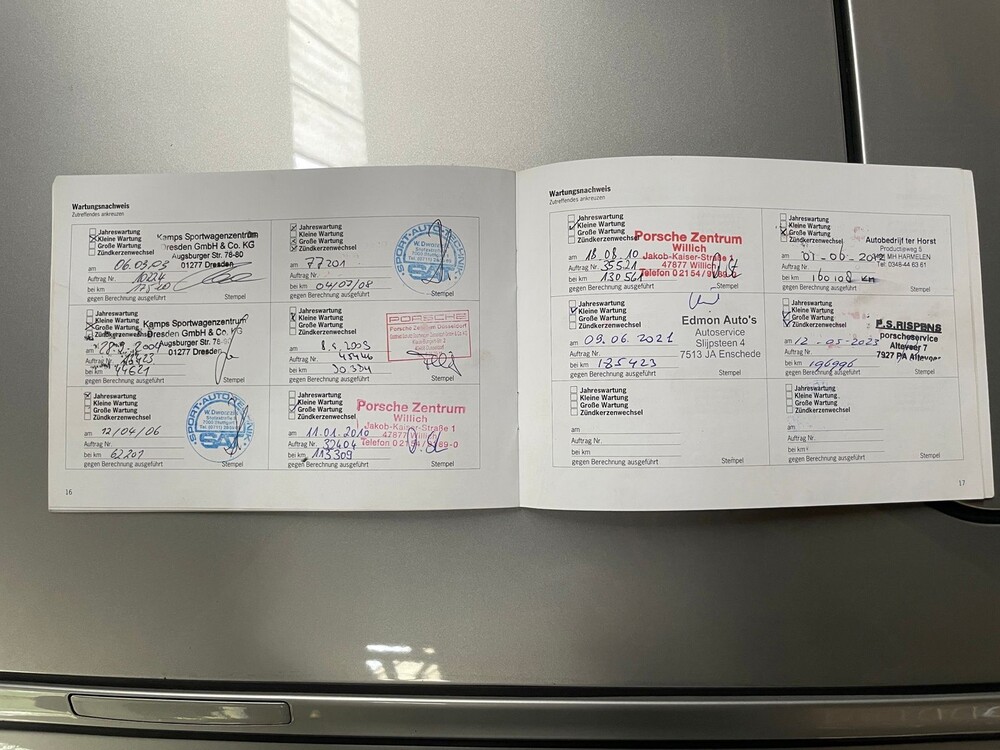 Wartungsnachweis
Zutreffendes ankreuzen
Jahreswartung
Kleine Wartung
Große Wartung
Zündkerzenwechsel
Kamps Sportwagenzentrum
Dresden GmbH & Co. KG
Augsburger Str. 76-80
01277 Dresden
am 06.03.03
Auftrag Nr.
bei km
gegen Berechnung ausgeführt
Stempel
Jahreswartung
Kleine Wartung
Große Wartung
Zündkerzenwechsel
SPORT-AUTO
am
Auftrag Nr. 77201
bei km 04/02/08
gegen Berechnung ausgeführt
Stempel
Jahreswartung
Kleine Wartung
Große Wartung
Kamps Sportwagenzentrum
Dresden GmbH & Co. KG
Augsburger Str. 76-80
01277 Dresden
am
Auftrag Nr.
bei km 44621
gegen Berechnung ausgeführt
Stempel
Jahreswartung
Kleine Wartung
Große Wartung
Zündkerzenwechsel
PORSCHE
Porsche Zentrum Düsseldorf
am
Auftrag Nr.
bei km
gegen Berechnung ausgeführt
Stempel
Jahreswartung
Kleine Wartung
Große Wartung
Zündkerzenwechsel
SPORT-AUTO
am 12/04/06
Auftrag Nr.
bei km 62201
gegen Berechnung ausgeführt
Stempel
Jahreswartung
Kleine Wartung
Große Wartung
Zündkerzenwechsel
Porsche Zentrum
Willich
Jakob-Kaiser-Straße 1
47877 Willich
Telefon 0 21 54 / 89-0
am 11.01.2010
Auftrag Nr. 32404
bei km 113309
gegen Berechnung ausgeführt
Stempel
16
Wartungsnachweis
Zutreffendes ankreuzen
Jahreswartung
Kleine Wartung
Große Wartung
Zündkerzenwechsel
Porsche Zentrum
Willich
Jakob-Kaiser-Straße 1
47877 Willich
Telefon 0 21 54 /
am 18.08.10
Auftrag Nr. 35521
bei km 130561
gegen Berechnung ausgeführt
Stempel
Jahreswartung
Kleine Wartung
Große Wartung
Zündkerzenwechsel
Autobedrijf ter Horst
Productieweg 5
MH HARMELEN
Tel: 0348-44 63 61
am 01-06-2012
Auftrag Nr.
bei km 160108 km
gegen Berechnung ausgeführt
Stempel
Jahreswartung
Kleine Wartung
Große Wartung
Zündkerzenwechsel
Edmon Auto's
Autoservice
Slijpsteen 4
7513 JA Enschede
am 09.06.2021
Auftrag Nr.
bei km 185423
gegen Berechnung ausgeführt
Stempel
Jahreswartung
Kleine Wartung
Große Wartung
Zündkerzenwechsel
P.S.RISPENS
porscheservice
Alteveer 7
7927 PA Alteveer
am 12-05-2023
Auftrag Nr.
bei km 196996
gegen Berechnung ausgeführt
Stempel
Jahreswartung
Kleine Wartung
Große Wartung
Zündkerzenwechsel
am
Auftrag Nr.
bei km
gegen Berechnung ausgeführt
Stempel
Jahreswartung
Kleine Wartung
Große Wartung
Zündkerzenwechsel
am
Auftrag Nr.
bei km
gegen Berechnung ausgeführt
Stempel
17